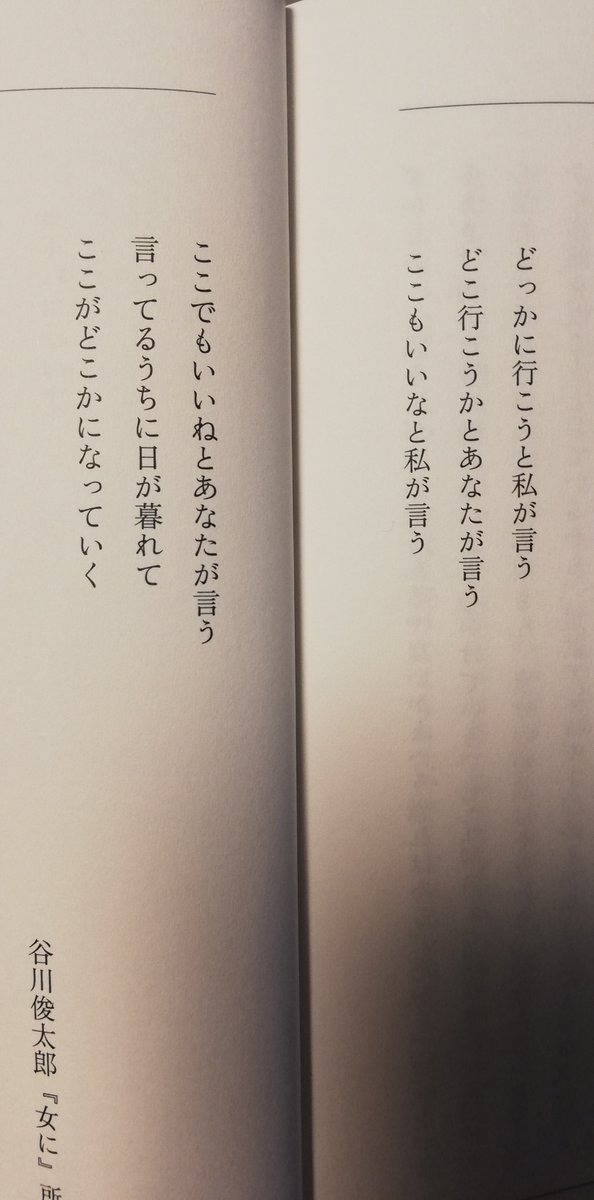 どっかに行こうと私が言う
どこ行こうかとあなたが言う
ここもいいなと私が言う
ここでもいいねとあなたが言う
言ってるうちに日が暮れて
ここがどこかになっていく
谷川俊太郎『女に』所